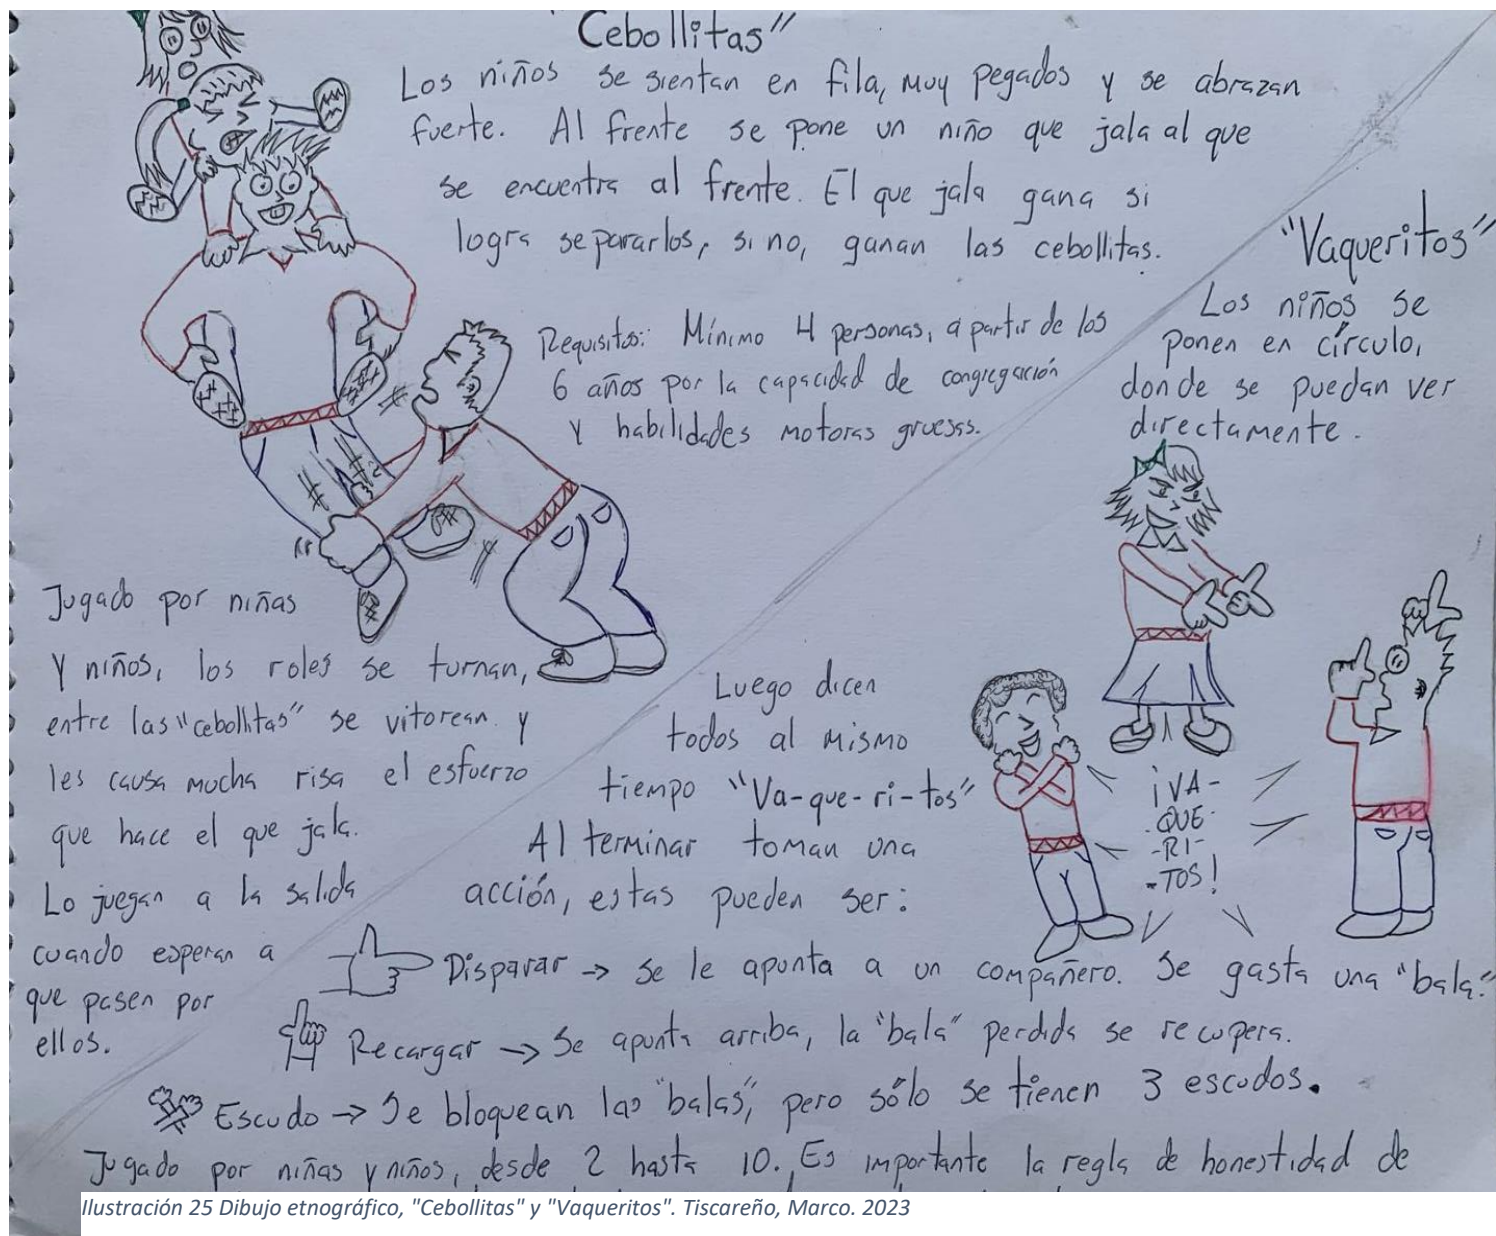 "Cebollitas"
Los niños se sientan en fila, muy pegados y se abrazan
fuerte. Al frente se pone un niño que jala al que
se encuentra al frente. El que jala gana si
logra separarlos, si no, ganan las cebollitas.
Requisitos: Mínimo 4 personas, a partir de los
6 años por la capacidad de congregación
y habilidades motoras gruesas.
Jugado por niñas
Y niños, los roles se turnan,
entre las "cebollitas" se vitorean y
les causa mucha risa el esfuerzo
que hace el que jala.
Lo juegan a la salida
cuando esperan a
que pasen por
ellos.
"Vaqueritos"
Los niños se
ponen en círculo,
donde se puedan ver
directamente.
Luego dicen
todos al mismo
tiempo "Va-que-ri-tos"
Al terminar toman una
acción, estas pueden ser:
¡VA-
-QUE-
-RI-
-TOS!
Disparar → Se le apunta a un compañero. Se gasta una "bala."
Recargar → Se apunta arriba, la "bala" perdida se recupera.
Escudo → Se bloquean las "balas", pero sólo se tienen 3 escudos.
Jugado por niñas y niños, desde 2 hasta 10. Es importante la regla de honestidad de
Ilustración 25 Dibujo etnográfico, "Cebollitas" y "Vaqueritos". Tiscareño, Marco. 2023